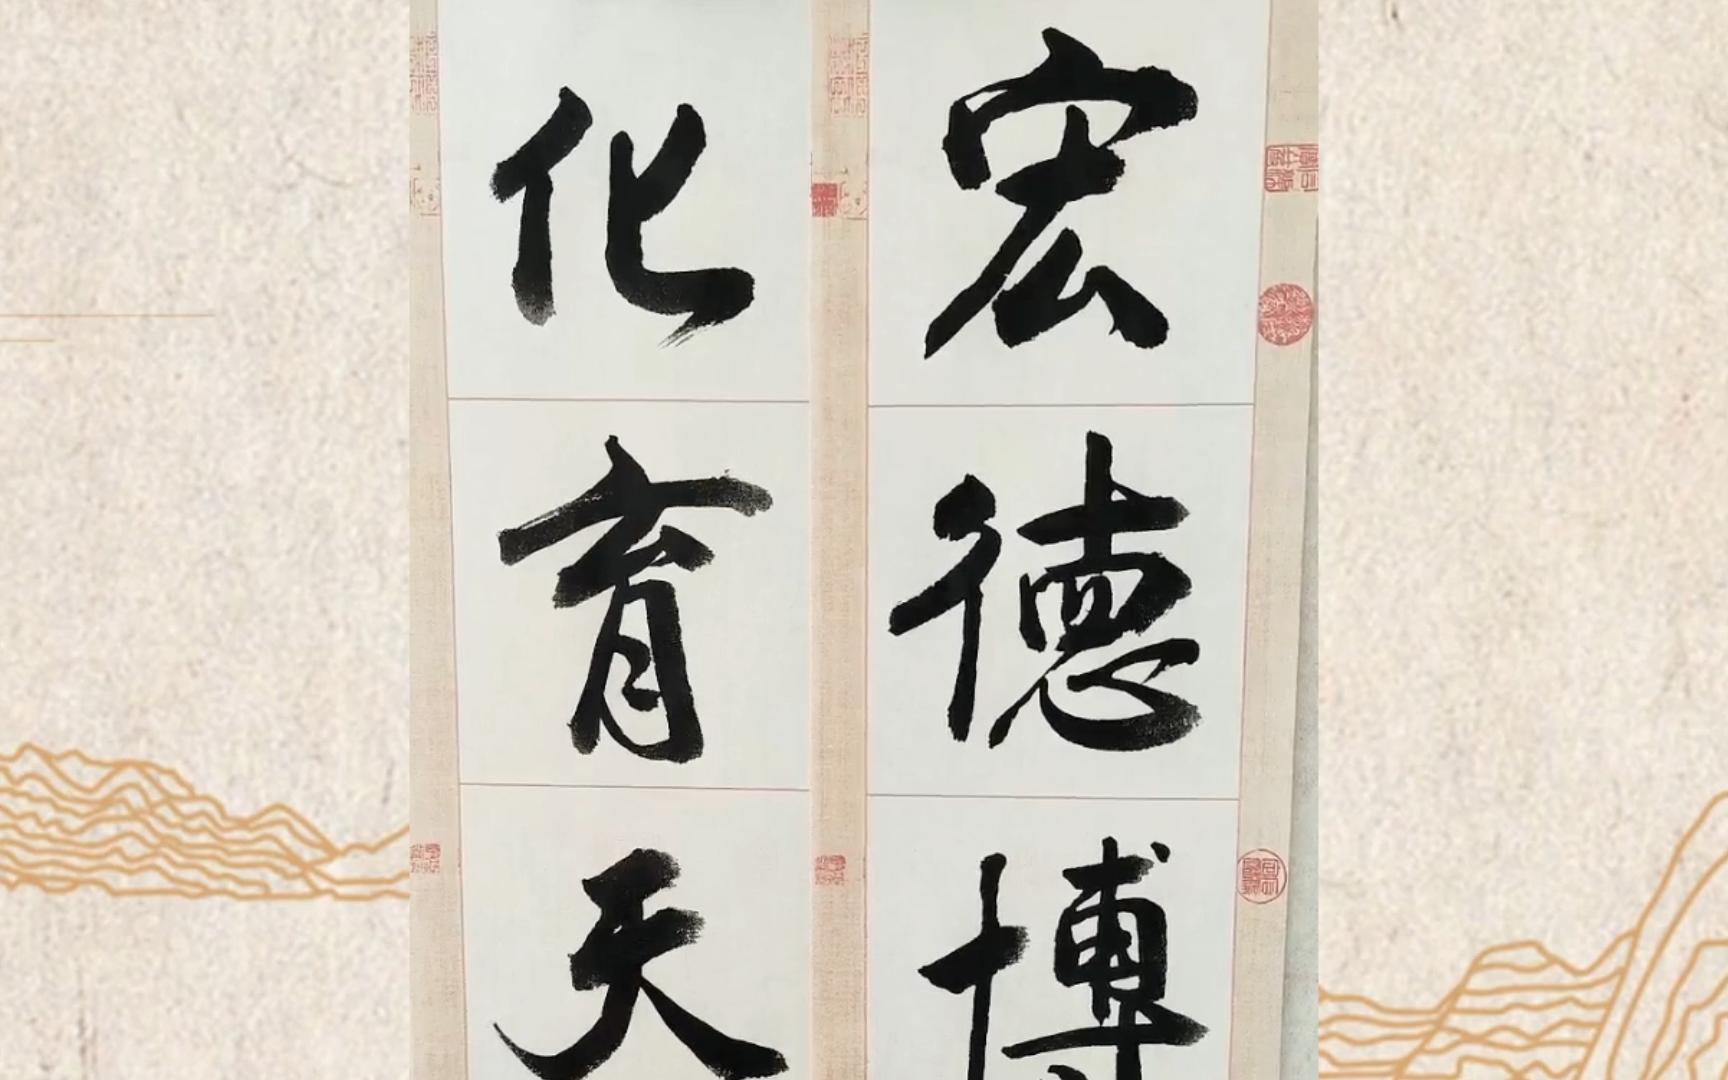 宏德博
化育天